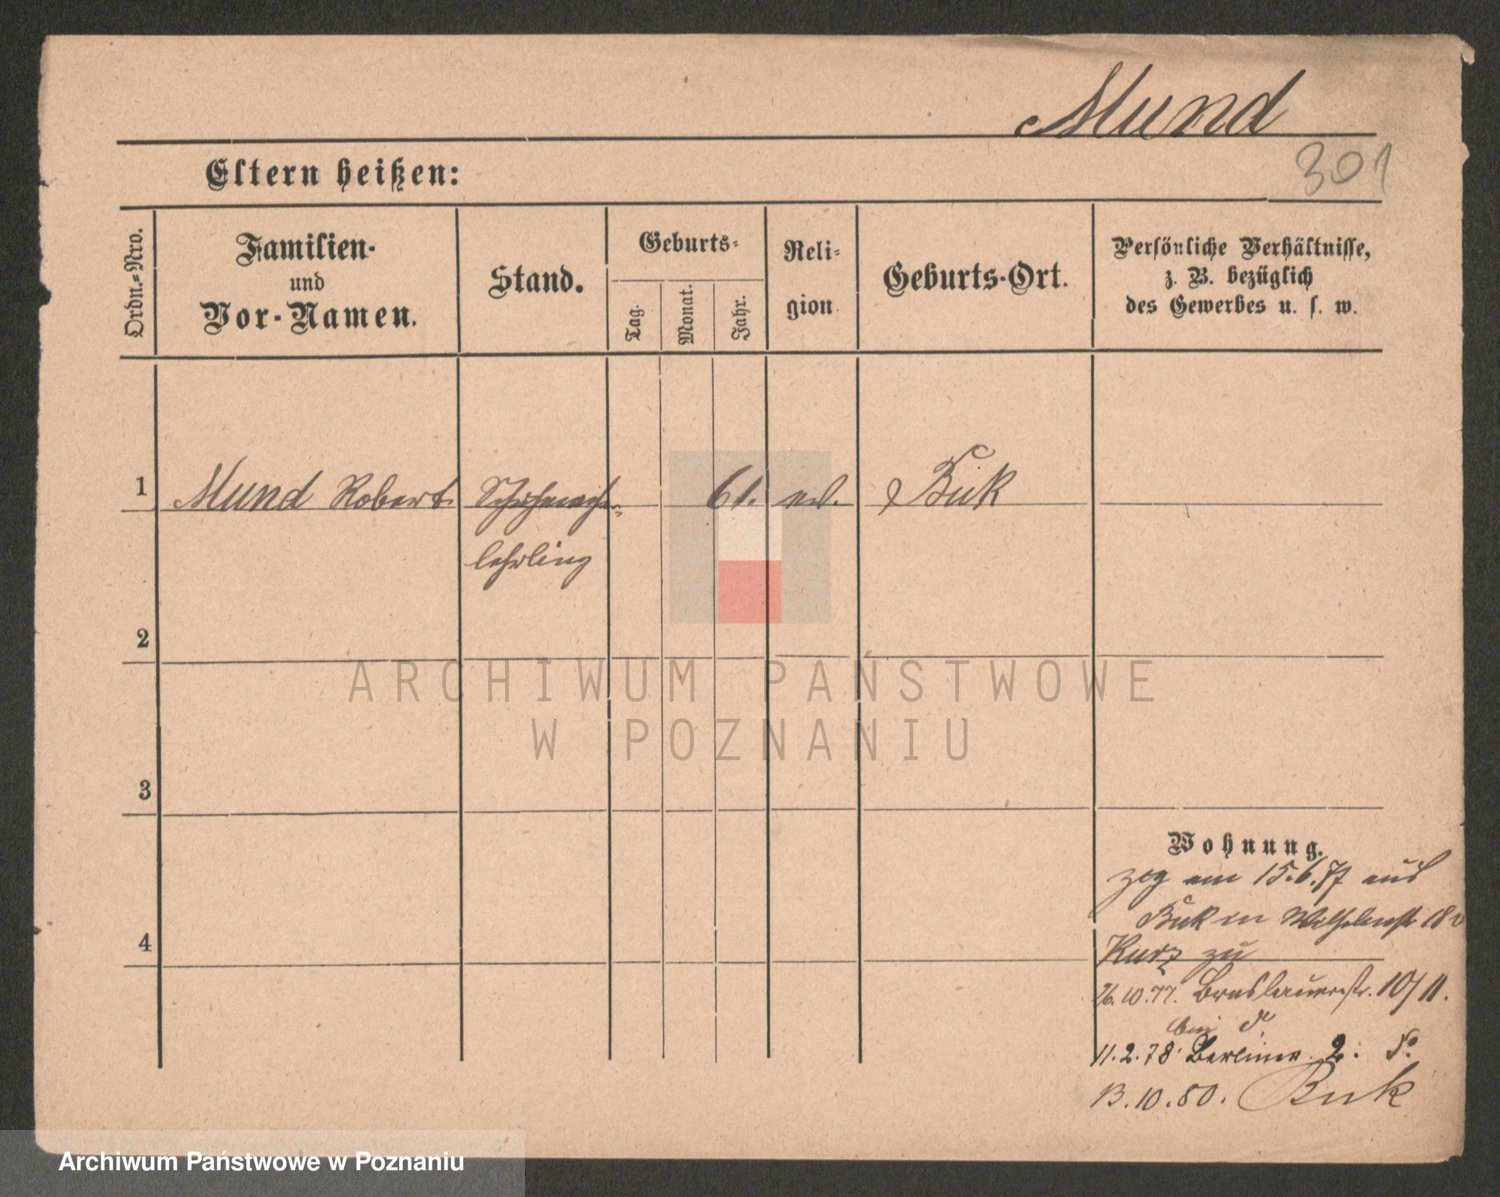 Mund
301
Eltern heißen:
Ordn.-Nro.
Familien-
und
Vor-Namen.
Stand.
Geburts-
Tag.
Monat.
Jahr.
Reli-
gion
Geburts-Ort.
Persönliche Verhältnisse,
z. B. bezüglich
des Gewerbes u. s. w.
1 Mund Robert Schuhmacher- 61. ev. Buk
lehrling
2
ARCHIWUM PAŃSTWOWE
W POZNANIU
3
Wohnung.
zog am 15.6.77 aus
Buk in Wilhelmstr. 18
4
Kurz zu
26.10.77. Breslauerstr. 10/11.
bei d.
11.2.78 Berliner. 2.
13.10.80. Buk
Archiwum Państwowe w Poznaniu